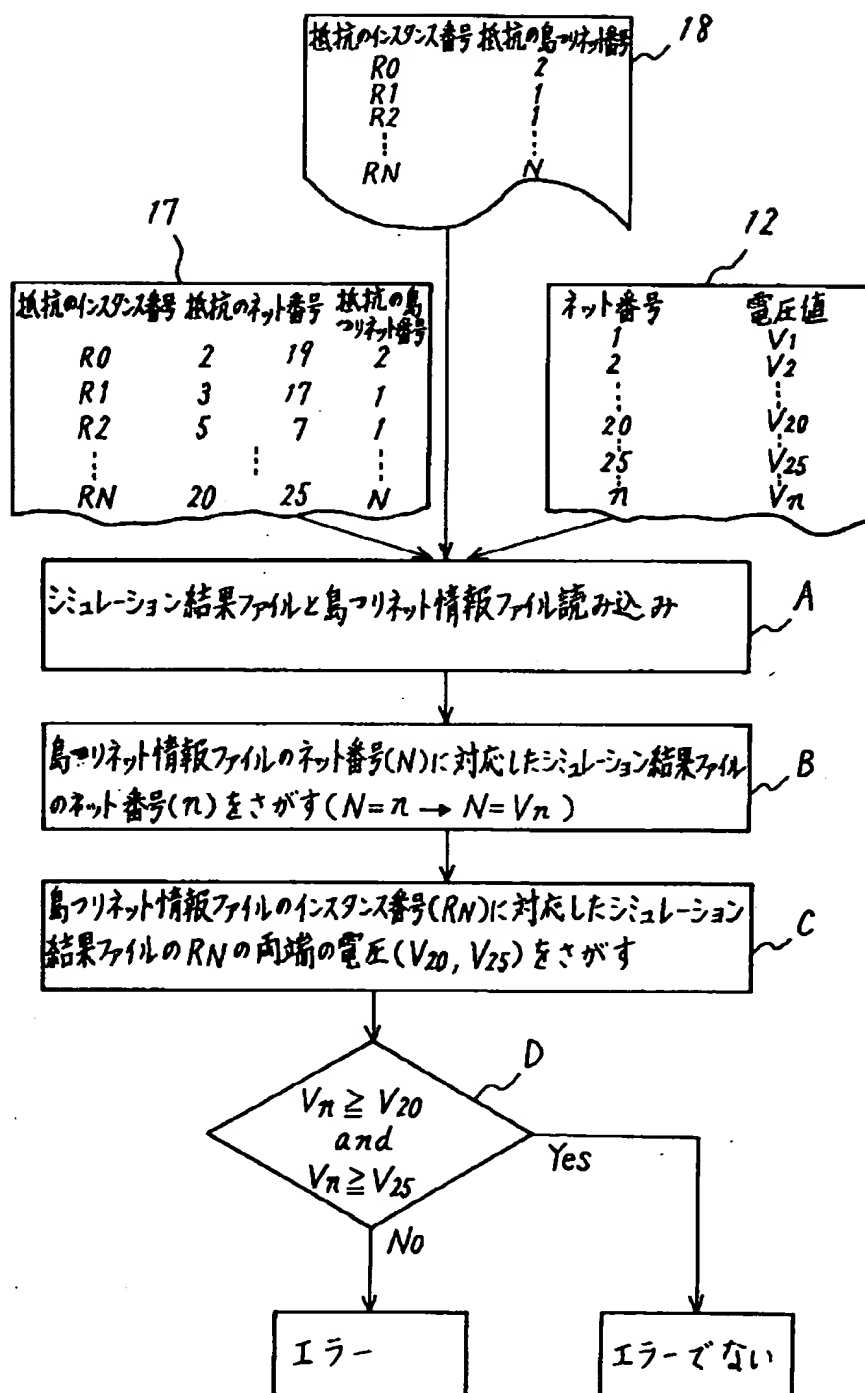 抵抗のインスタンス番号 抵抗の島つりネット番号
18
R0 2
R1 1
R2 1
RN N
17
抵抗のインスタンス番号 抵抗のネット番号 抵抗の島つりネット番号
R0 2 19 2
R1 3 17 1
R2 5 7 1
RN 20 25 N
12
ネット番号 電圧値
1 V1
2 V2
20 V20
25 V25
n Vn
シミュレーション結果ファイルと島つりネット情報ファイル読み込み
A
島つりネット情報ファイルのネット番号(N)に対応したシミュレーション結果ファイル
のネット番号(n)をさがす(N=n→N=Vn)
B
島つリネット情報ファイルのインスタンス番号(RN)に対応したシミュレーション
結果ファイルのRNの両端の電圧(V20, V25)をさがす
C
D
Vn≧V20
and
Vn≧V25
Yes
No
エラー
エラーでない